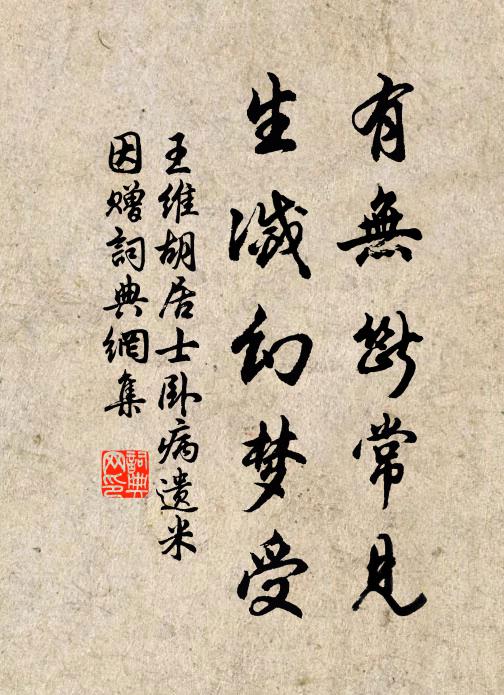 有無斷常見
生滅幻梦受
王維胡居士卧病遺米
因贈詞典網集
詞典
网印